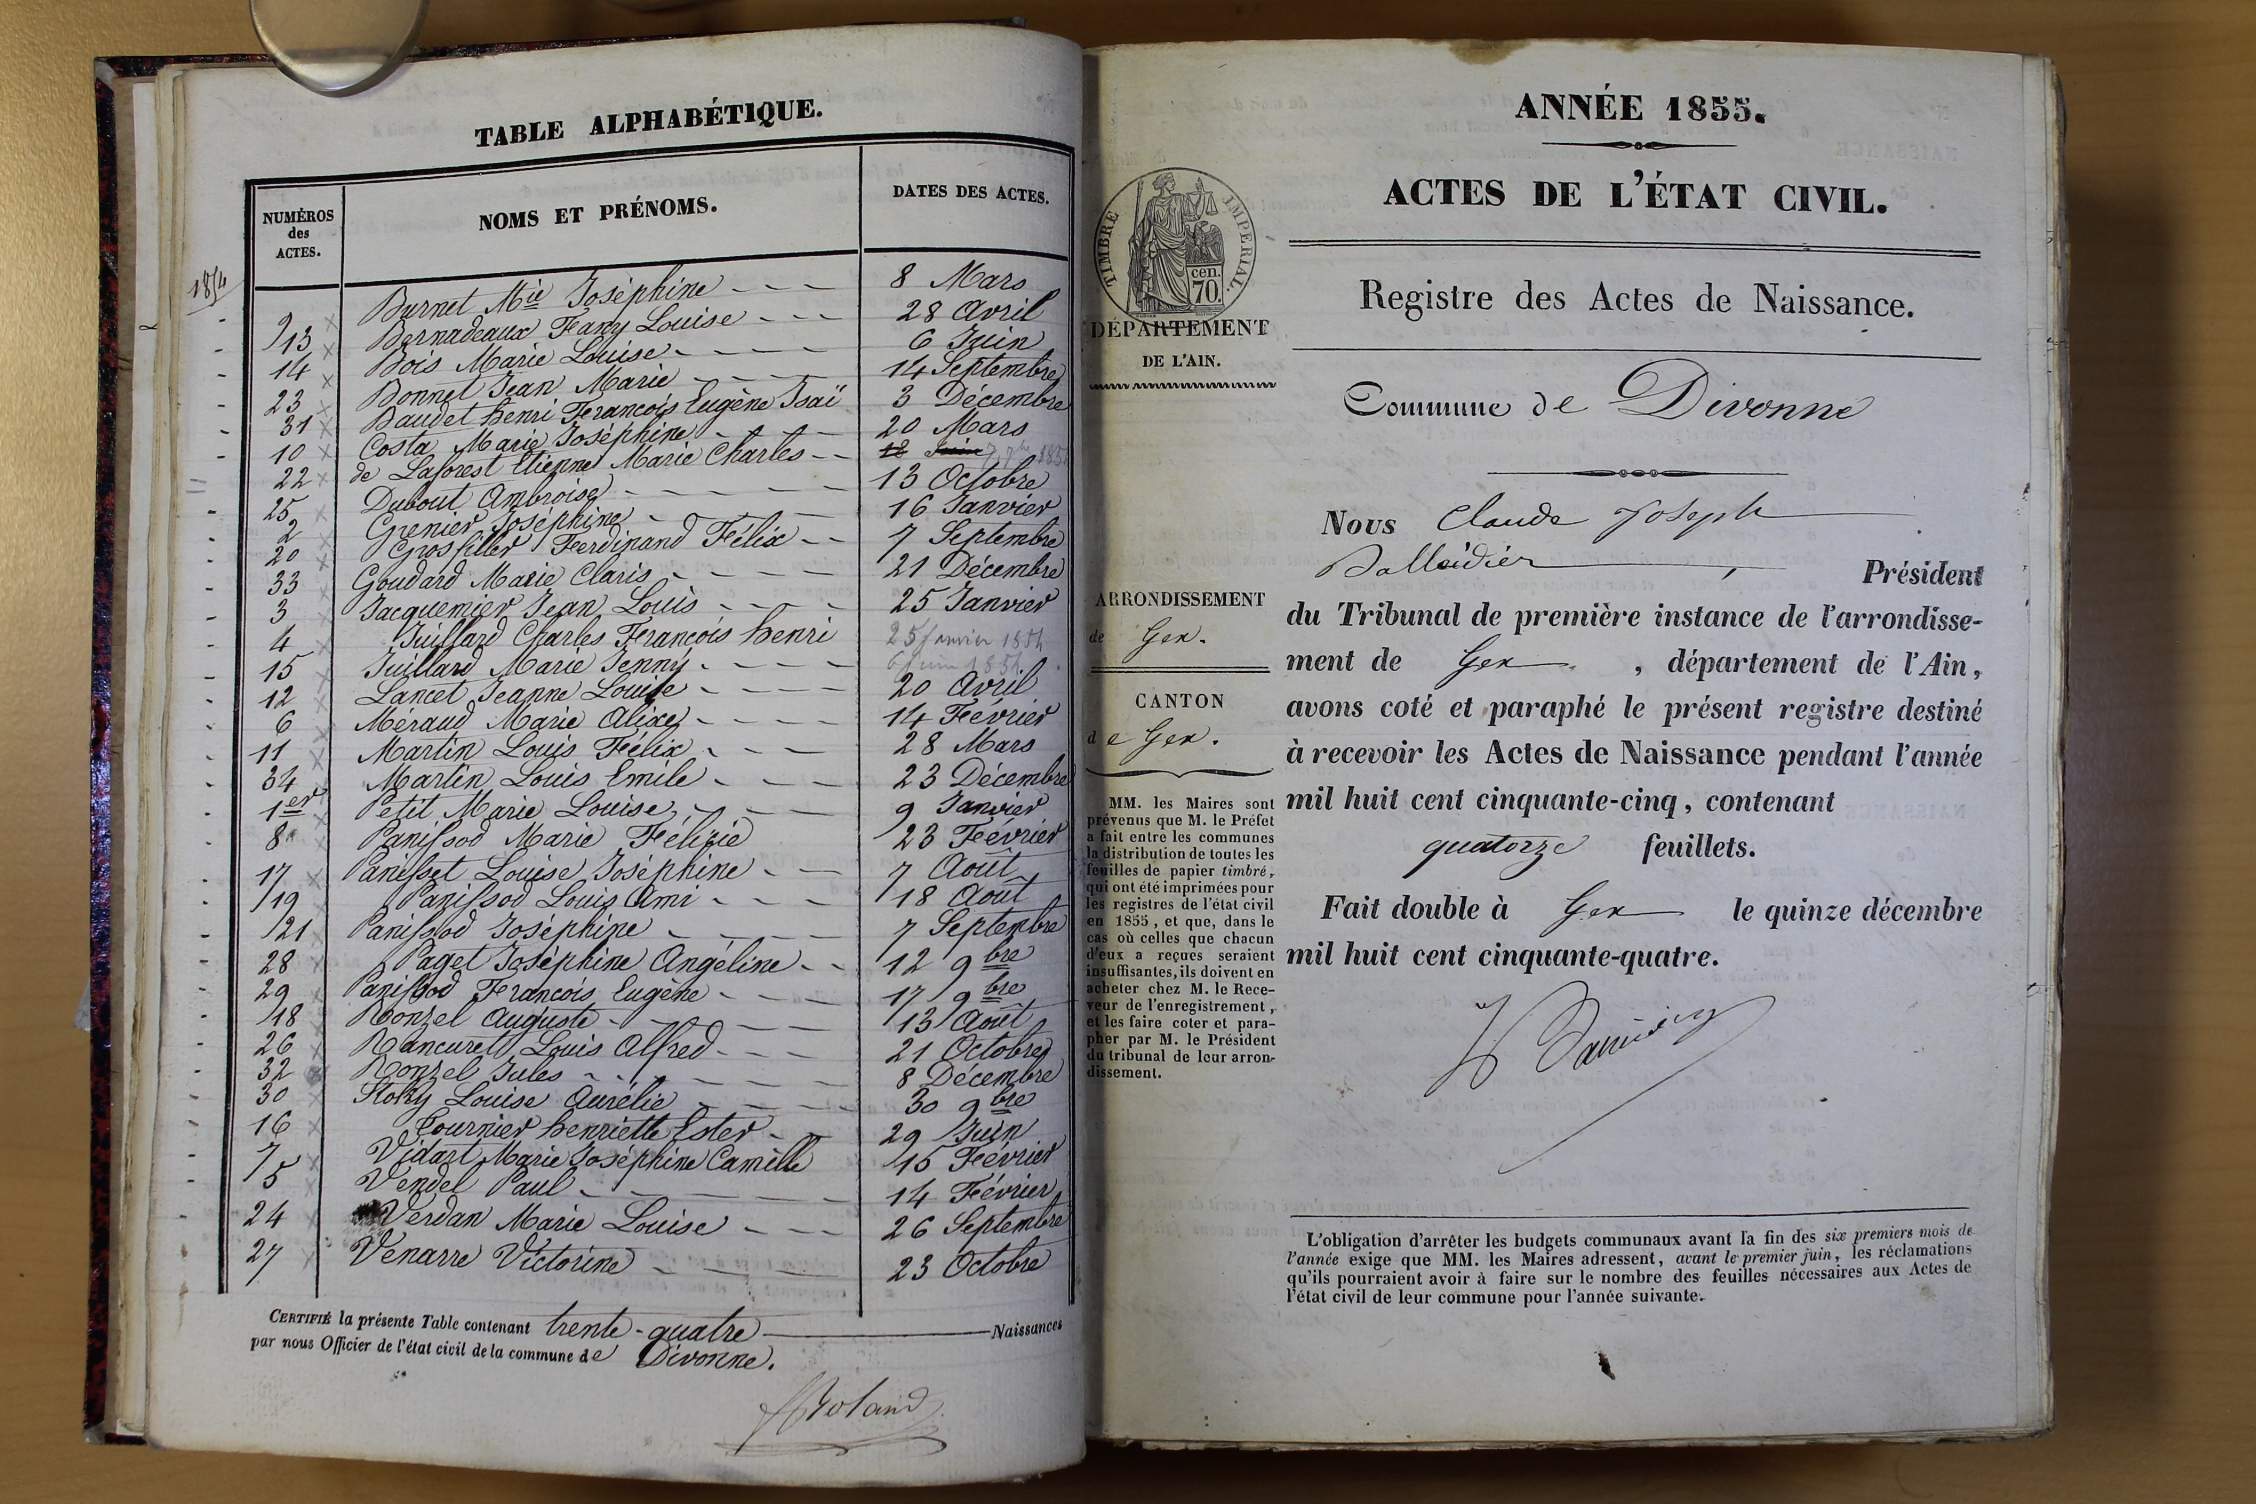 TABLE ALPHABÉTIQUE.
NUMÉROS des ACTES.
NOMS ET PRÉNOMS.
DATES DES ACTES.
1854
9 Burnet Mie Joséphine 8 Mars
13 Bernadeaux Fany Louise 28 Avril
14 Bois Marie Louise 6 Juin
23 Bonnet Jean Marie 14 Septembre
31 Baudet henri François Eugène Isaï 3 Décembre
10 Costa Marie Joséphine 20 Mars
22 de Laforest Etienne Marie Charles
25 Dubout Ambroise 13 Octobre
2 Grenier Joséphine 16 Janvier
20 Grosfiller Ferdinand Félix 7 Septembre
33 Goudard Marie Claris 21 Décembre
3 Jacquemier Jean Louis 25 Janvier
4 Juillard Charles François henri 25 Janvier 1854
15 Juillard Marie Jenny 6 juin 1854
12 Lancet Jeanne Louise 20 Avril
6 Méraud Marie Alixe 14 Février
11 Martin Louis Félix 28 Mars
34 Martin Louis Emile 23 Décembre
1er Petit Marie Louise 9 Janvier
8 Panissod Marie Félizie 23 Février
17 Panisset Louise Joséphine 7 Août
19 Panissod Louis Ami 18 Août
21 Panissod Joséphine 7 Septembre
28 Paget Joséphine Angéline 12 9bre
29 Panissod François Eugène 17 9bre
18 Ronzel Auguste 13 Août
26 Rancurel Louis Alfred 21 Octobre
32 Ronzel Jules 8 Décembre
30 Stoky Louise Aurélie 30 9bre
16 Tournier henriette Ester 29 Juin
7 Vidart Marie Joséphine Camille 15 Février
5 Vendel Paul 14 Février
24 Verdan Marie Louise 26 Septembre
27 Venarre Victorine 23 Octobre
CERTIFIÉ la présente Table contenant trente-quatre Naissances
par nous Officier de l'état civil de la commune de Divonne.
Roland
TIMBRE IMPERIAL.
cen.
70.
DÉPARTEMENT
DE L'AIN.
ARRONDISSEMENT
de Gex.
CANTON
de Gex.
MM. les Maires sont
prévenus que M. le Préfet
a fait entre les communes
la distribution de toutes les
feuilles de papier timbré,
qui ont été imprimées pour
les registres de l'état civil
en 1855, et que, dans le
cas où celles que chacun
d'eux a reçues seraient
insuffisantes, ils doivent en
acheter chez M. le Rece-
veur de l'enregistrement,
et les faire coter et para-
pher par M. le Président
du tribunal de leur arron-
dissement.
ANNÉE 1855.
ACTES DE L'ÉTAT CIVIL.
Registre des Actes de Naissance.
Commune de Divonne
Nous Claude Joseph
Président
du Tribunal de première instance de l'arrondisse-
ment de Gex, département de l'Ain,
avons coté et paraphé le présent registre destiné
à recevoir les Actes de Naissance pendant l'année
mil huit cent cinquante-cinq, contenant
quatorze feuillets.
Fait double à Gex le quinze décembre
mil huit cent cinquante-quatre.
L'obligation d'arrêter les budgets communaux avant la fin des six premiers mois de
l'année exige que MM. les Maires adressent, avant le premier juin, les réclamations
qu'ils pourraient avoir à faire sur le nombre des feuilles nécessaires aux Actes de
l'état civil de leur commune pour l'année suivante.